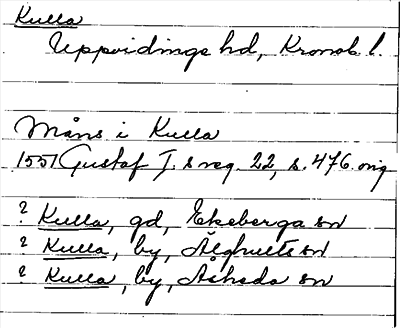 Kulla
Uppvidinge hd, Kronob l.
Måns i Kulla
1551 Gustaf I.s reg. 22, s. 476. orig
? Kulla, gd, Ekeberga sn
? Kulla, by, Älghults sn
? Kulla, by, Åsheda sn